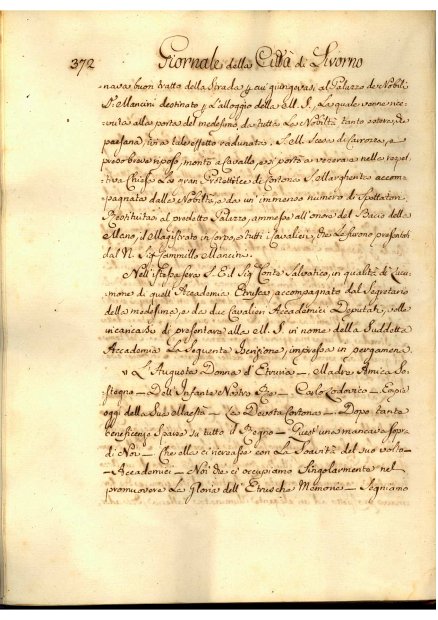 372 Giornale della Città di Livorno
nava buon tratto della Strada, p. cui giungevasi al Palazzo de Nobili
Sri. Mancini destinato p. L'alloggio della M. S., La quale venne rice-
vuta alla porta del medesimo, da tutta La Nobiltà tanto estera, che
paesana, ivi a tale effetto radunata. S. M. scesa di Carrozza, e
preso breve riposo, montò a Cavallo, e si portò a venerare nella respet-
tiva Chiesa La gran Protettrice di Cortona S. Margherita accom-
pagnata dalla Nobiltà, e da un' immenso numero di Spettatori.
Restituita al predetto Palazzo, ammesse all'onore del Bacio della
Mano, il Magistrato in corpo, e tutti i Cavalieri, che Le furono presentati
dal N. Sig. Cammillo Mancini.
Nell'istessa sera S. E. il Sig. Conte Salvatico, in qualità di Lucu-
mone di quell' Accademia Etrusca, accompagnato dal Segretario
della medesima, e da due Cavalieri Accademici Deputati, volle
incaricarsi di presentare alla M. S. in nome della Suddetta
Accademia La Seguente Iscrizione, impressa in pergamena.
L'Augusta Donna d'Etruria _ Madre Amica So-
stegno _ Dell'Infante Nostro Re _ Carlo Lodovico _ Empie
oggi della Sua Maestà _ La Devota Cortona _ Dopo tante
beneficenze Sparse su tutto il Regno _ Quest'una mancava sopra
di Noi _ Che ella ci ricreasse con La Soavità del suo volto _
_ Accademici _ Noi che ci occupiamo Singolarmente nel
promuovere La Gloria dell' Etrusche Memorie _ Segniamo